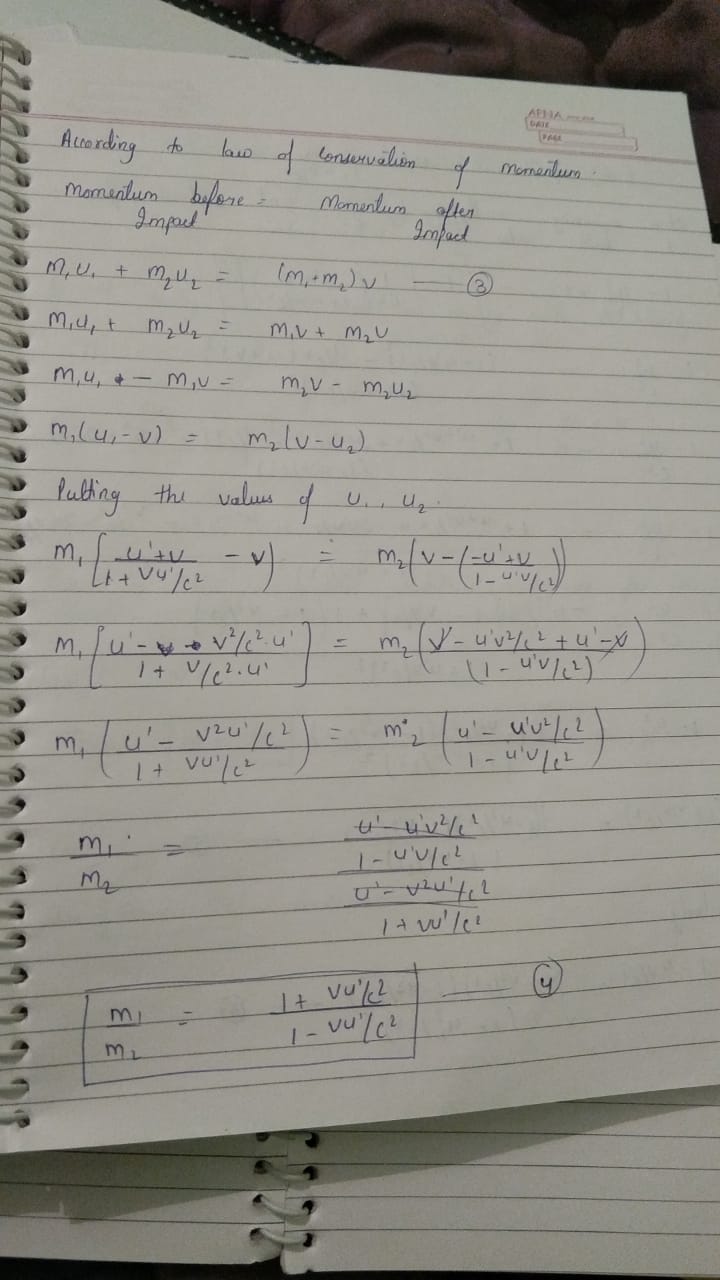 APNA
DATE
PAGE
According to law of conservation of momentum.
Momentum before = Momentum after
Impact Impact
m₁u₁ + m₂u₂ = (m₁+m₂)v — ③
m₁u₁ + m₂u₂ = m₁v + m₂v
m₁u₁ - m₁v = m₂v - m₂u₂
m₁(u₁-v) = m₂(v-u₂)
Putting the values of u₁, u₂.
m₁ [ (u'+v) / (1+vu'/c²) - v ) = m₂ ( v - ( (-u'+v) / (1-u'v/c²) ) )
m₁ [ (u' - v²/c².u') / (1 + v/c².u') ] = m₂ ( (v - u'v²/c² + u' - v) / (1-u'v/c²) )
m₁ ( (u' - v²u'/c²) / (1 + vu'/c²) ) = m₂ ( (u' - u'v²/c²) / (1 - u'v/c²) )
m₁/m₂ = ( (u' - u'v²/c²) / (1 - u'v/c²) ) / ( (u' - v²u'/c²) / (1 + vu'/c²) )
m₁/m₂ = (1 + vu'/c²) / (1 - vu'/c²) — ④